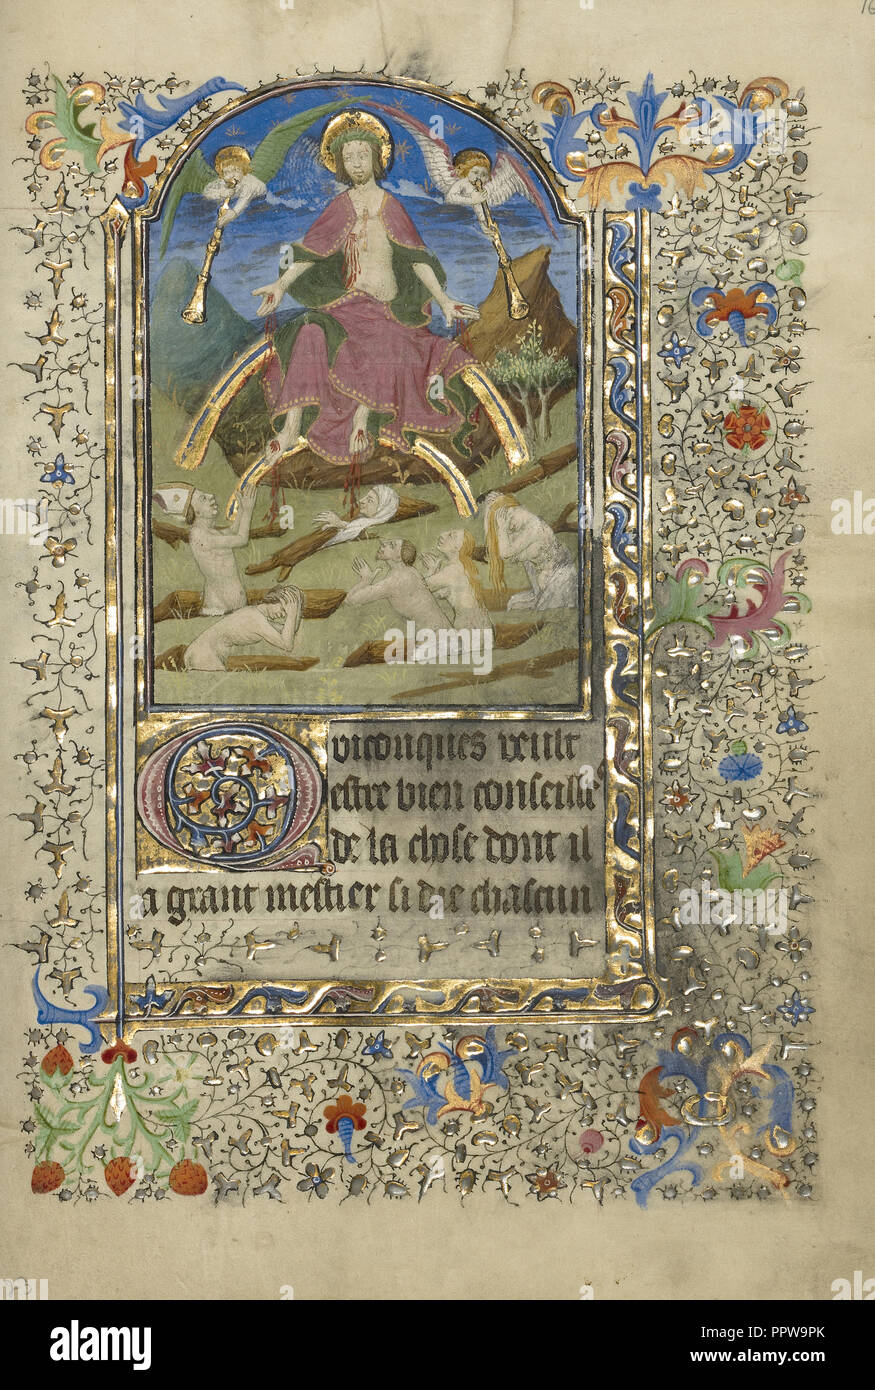 16
Quiconques veult
estre bien conseillé
de la chose dont il
a grant mestier si die chascun
alamy
Image ID: PPW9PK
www.alamy.com